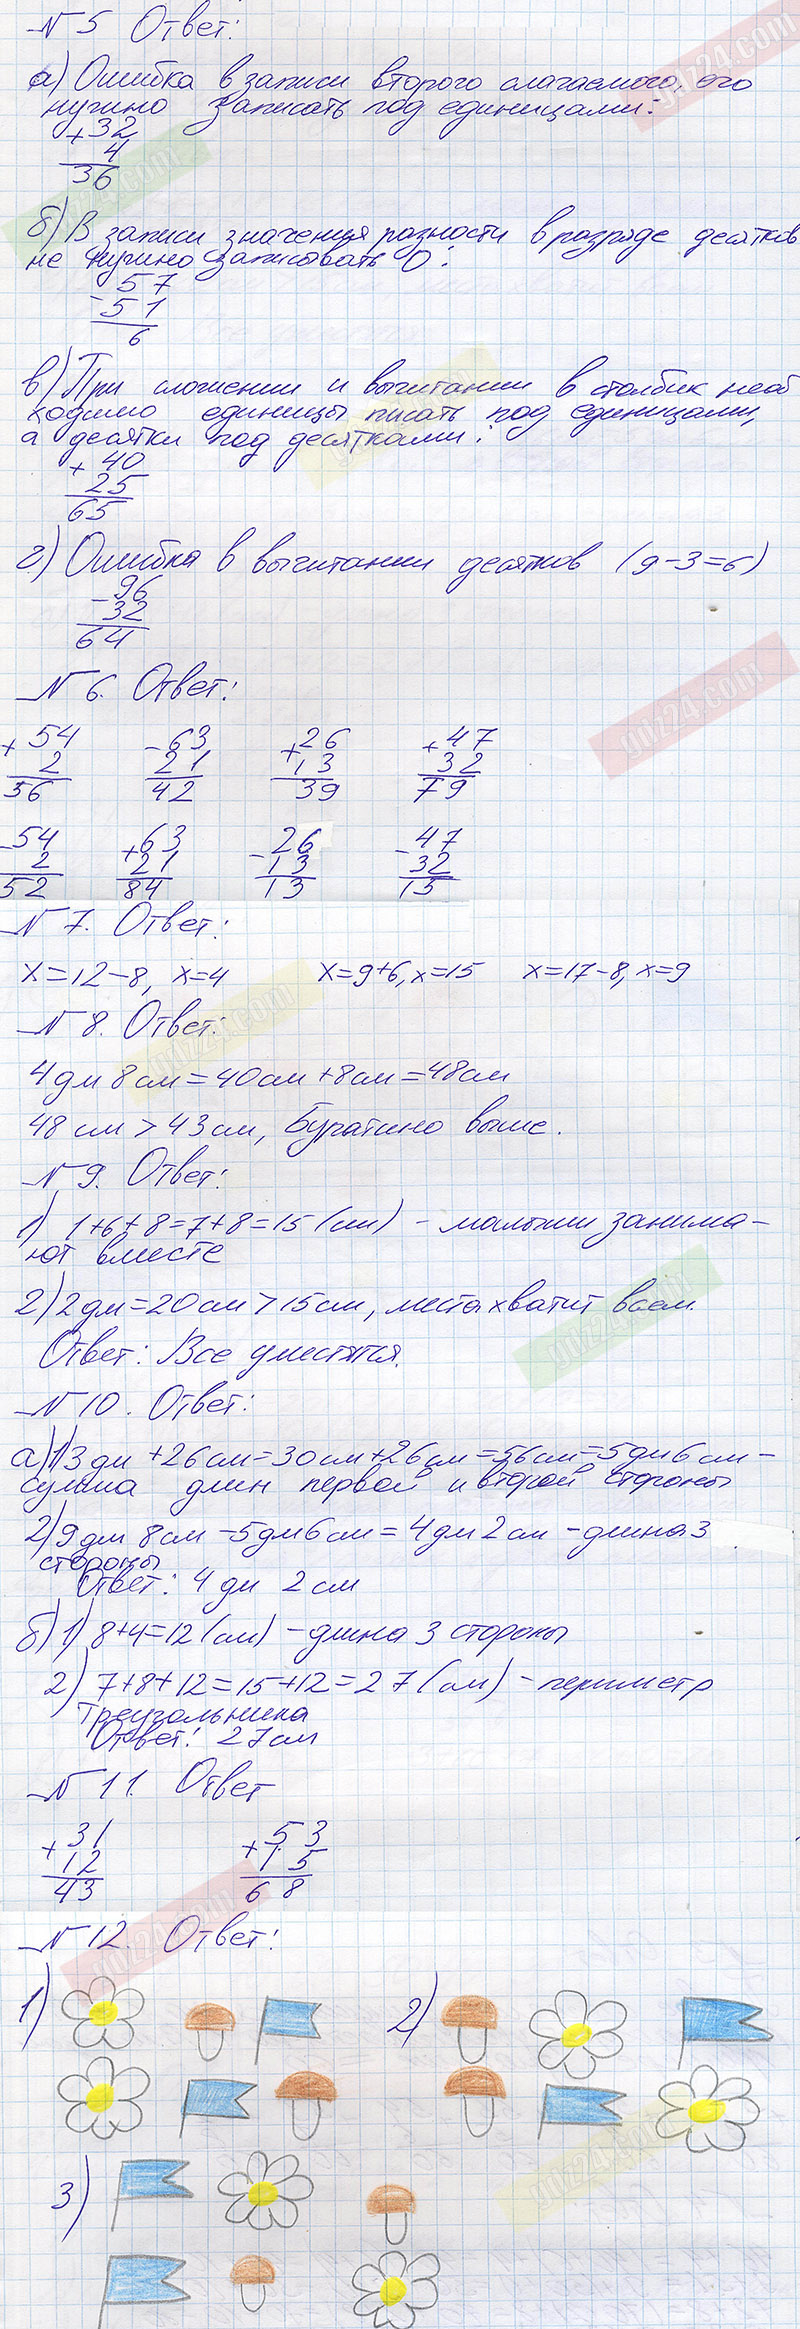 №5 Ответ:
а) Ошибка в записи второго слагаемого, его
нужно записать под единицами:
+32
4
36
б) В записи значения разности в разряде десятков
не нужно записывать 0:
57
-51
6
в) При сложении и вычитании в столбик необ
ходимо единицы писать под единицами,
а десятки под десятками:
+40
25
65
г) Ошибка в вычитании десятков (9-3=6)
-96
32
64
№6. Ответ:
+54 -63 +26 +47
2 21 13 32
56 42 39 79
-54 +63 -26 -47
2 21 13 32
52 84 13 15
№7. Ответ:
x=12-8, x=4 x=9+6, x=15 x=17-8, x=9
№8. Ответ:
4дм 8см=40см+8см=48см
48см>43см, Буратино выше.
№9. Ответ:
1) 1+6+8=7+8=15(см) - малыши занима-
ют вместе
2) 2дм=20см>15см, места хватит всем.
Ответ: Все уместятся.
№10. Ответ:
а) 1) 3дм+26см=30см+26см=56см=5дм6см-
сумма длин первой и второй стороны
2) 9дм 8см-5дм6см=4дм2см-длина 3
стороны
Ответ: 4дм 2см
б) 1) 8+4=12(см) - длина 3 стороны
2) 7+8+12=15+12=27(см) - периметр
треугольника
Ответ: 27см
№11. Ответ
+31 +53
12 15
43 68
№12. Ответ:
1) 2)
3)
gdz24.com
gdz24.com
gdz24.com
gdz24.com
gdz24.com
gdz24.com
gdz24.com
gdz24.com